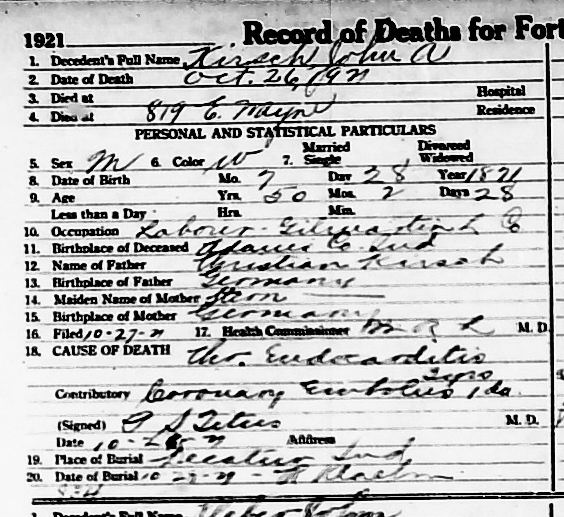 1921 Record of Deaths for Fort
1. Decedent's Full Name Kirsch John A
2. Date of Death Oct. 26, 1921
3. Died at Hospital
4. Died at 819 E. Wayne Residence
PERSONAL AND STATISTICAL PARTICULARS
5. Sex M 6. Color W 7. Married Single Divorced Widowed
8. Date of Birth Mo. 7 Day 28 Year 1871
9. Age Yrs. 50 Mos. 2 Days 28
Less than a Day Hrs. Min.
10. Occupation Laborer
11. Birthplace of Deceased Adams Co. Ind
12. Name of Father Christian Kirsch
13. Birthplace of Father Germany
14. Maiden Name of Mother Stern
15. Birthplace of Mother Germany
16. Filed 10-27-21 17. Health Commissioner M. D.
18. CAUSE OF DEATH Chr. Endocarditis
2 yrs
Contributory Coronary Embolus 1 da.
(Signed) M. D.
Date 10- Address
19. Place of Burial Decatur Ind
20. Date of Burial 10
1. Decedent's Full Name